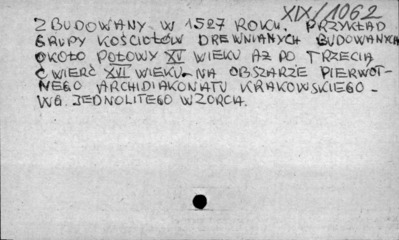 XIX/1062
ZBUDOWANY W 1527 ROKU. PRZYKŁAD
GRUPY KOŚCIOŁÓW DREWNIANYCH BUDOWANYCH
OKOŁO POŁOWY XV WIEKU AŻ PO TRZECIĄ
ĆWIERĆ XVI WIEKU NA OBSZARZE PIERWOT-
NEGO ARCHIDIAKONATU KRAKOWSKIEGO -
WG. JEDNOLITEGO WZORCA.